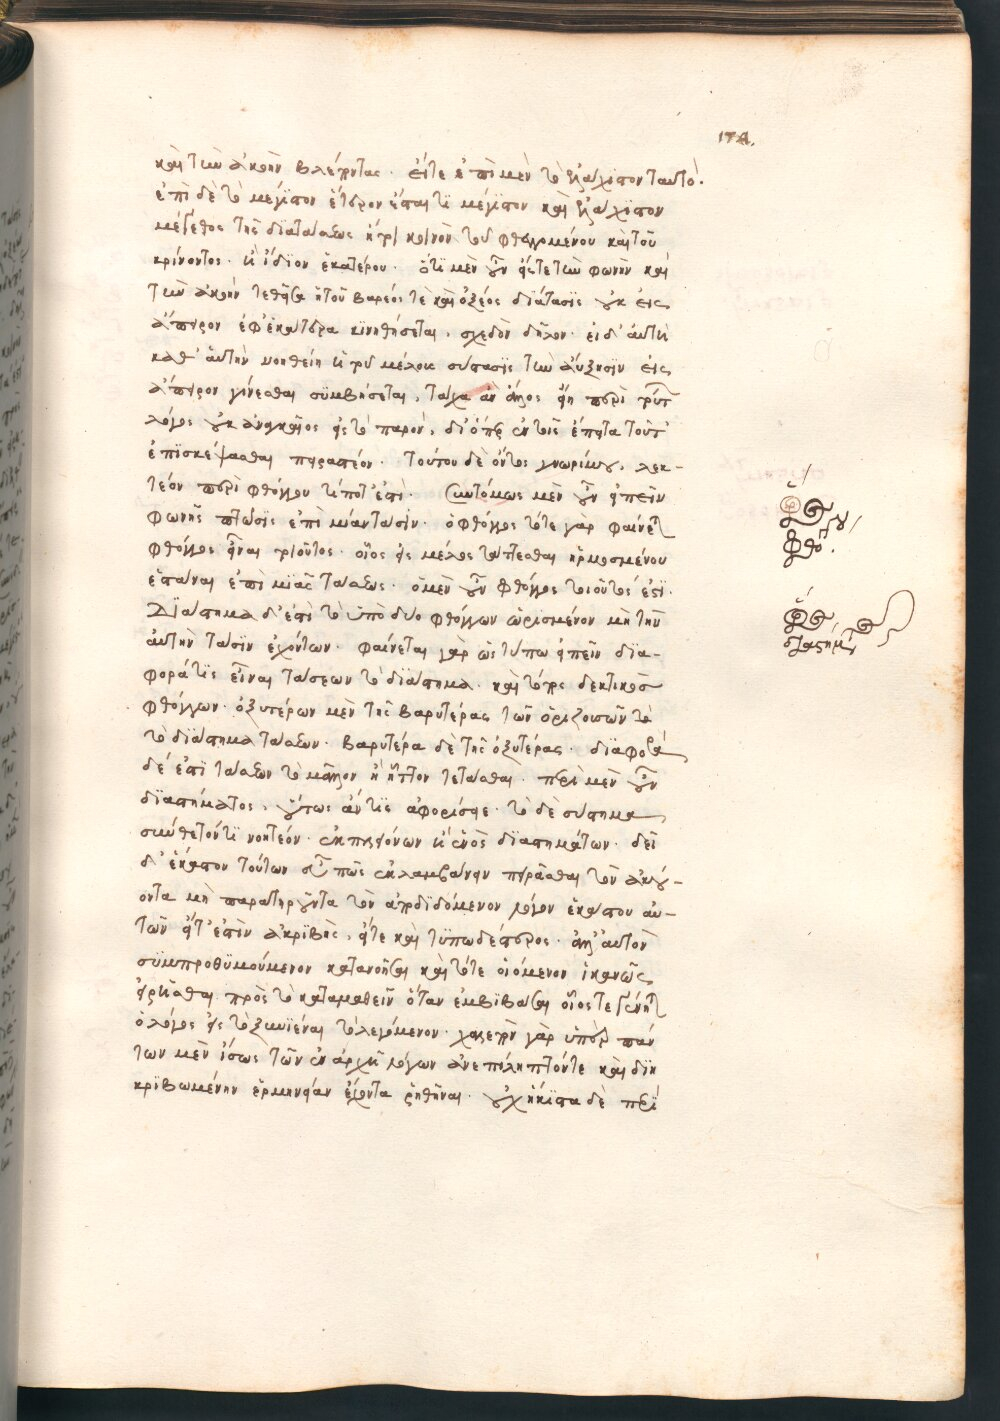 174.
καὶ τὴν ἀκοὴν βλέποντας. εἴτε ἐπὶ μὲν τὸ ἐλάχιστον ταυτὸ.
ἐπὶ δὲ τὸ μέγιστον ἕτερον ἔσται τι μέγιστον καὶ ἐλάχιστον
μέγεθος τῆς διατάσεως ἤτοι κοινὸν τοῦ φθεγγομένου καὶ τοῦ
κρίνοντος. ἢ ἴδιον ἑκατέρου. ὅτι μὲν οὖν εἴς τε τὴν φωνὴν καὶ
τὴν ἀκοὴν τεθεῖσα ἡ τοῦ βαρέος τὲ καὶ ὀξέος διάτασις οὐκ εἰς
ἄπειρον ἐφ' ἑκάτερα κινηθήσεται, σχεδὸν δῆλον. εἰ δ' αὐτὴ
καθ' αὑτὴν νοηθείη ἡ τοῦ μέλους σύστασις τὴν αὔξησιν εἰς
ἄπειρον γίνεσθαι συμβήσεται, τάχα ἂν ἄλλος εἴη περὶ τούτ
λόγος οὐκ ἀναγκαῖος εἰς τὸ παρόν, διόπερ ἐν τοῖς ἔπειτα τοῦτ'
ἐπισκέψασθαι πειρατέον. τούτου δὲ ὄντος γνωρίμου, λεκ-
τέον περὶ φθόγγου τί ποτ' ἐστί. Συντόμως μὲν οὖν εἰπεῖν
φωνῆς πτῶσις ἐπὶ μίαν τάσιν. ὁ φθόγγος τότε γὰρ φαίνετ
φθόγγος εἶναι τοιοῦτος. οἷος εἰς μέλος τάττεσθαι ἡρμοσμένου
ἑστάναι ἐπὶ μιᾶς τάσεως. ὁ μὲν οὖν φθόγγος τοιοῦτός ἐστι.
Διάστημα δ' ἐστὶ τὸ ὑπὸ δύο φθόγγων ὡρισμένον μὴ τὴν
αὐτὴν τάσιν ἐχόντων. φαίνεται γὰρ ὡς τύπω εἰπεῖν δια-
φορά τις εἶναι τάσεων τὸ διάστημα. καὶ τόπος δεκτικὸς
φθόγγων. ὀξυτέρων μὲν τῆς βαρυτέρας τῶν ὁριζουσῶν τὸ
τὸ διάστημα τάσεων. βαρυτέρα δὲ τῆς ὀξυτέρας. διάφορά
δέ ἐστι τάσεων τὸ μᾶλλον ἢ ἧττον τετάσθαι. περὶ μὲν οὖν
διαστήματος, οὕτως ἄν τις ἀφορίσειε. τὸ δὲ σύστημα
σύνθετόν τι νοητέον. ἐκ πλειόνων ἢ ἑνὸς διαστημάτων. δεῖ
δ' ἕκαστον τούτων εὖ πῶς ἐκλαμβάνειν πειρᾶσθαι τὸν ἀκού-
οντα μὴ παρατηροῦντα τὸν ἀποδιδόμενον λόγον ἑκάστου αὐ-
τῶν εἴτ' ἐστὶν ἀκριβὴς, εἴτε καὶ τυπωδέστερος. ἀλλ' αὐτὸν
συμπροθυμούμενον κατανοῆσαι καὶ τότε οἰόμενον ἱκανῶς
εἰρῆσθαι πρὸς τὸ καταμαθεῖν ὅταν ἐμβιβάσαι οἷός τε γένητ
ὁ λόγος εἰς τὸ ξυνιέναι τὸ λεγόμενον. χαλεπὸν γὰρ ὑπὲρ πάν
των μὲν ἴσως τῶν ἐν ἀρχῆ λόγων ἀνεπίληπτόν τε καὶ διη
κριβωμένην ἑρμηνείαν ἔχοντα ῥηθῆναι. οὐχ ἥκιστα δὲ περὶ